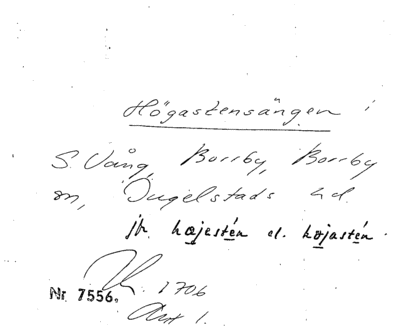 Högastensängen i
S. Vång, Borrby, Borrby
sn, Ingelstads hd.
jfr hæjestén el. højastén
1706
Nr 7556.
Akt 1.